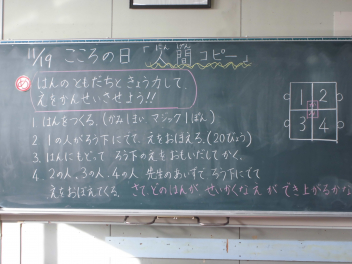 11/19 こころの日「人間コピー」
め はんのともだちときょう力して、
えをかんせいさせよう!!
1 はんをつくる。(かみ1まい マジック1ぽん)
2. 1の人がろう下にでて、えをおぼえる。(20びょう)
3. はんにもどって ろう下のえをおもいだしてかく。
4. 2の人、3の人、4の人 先生のあいずで、ろう下にでて
えをおぼえてくる。 さて どのはんが せいかくなえ ができ上がるかな
1 2
3 4